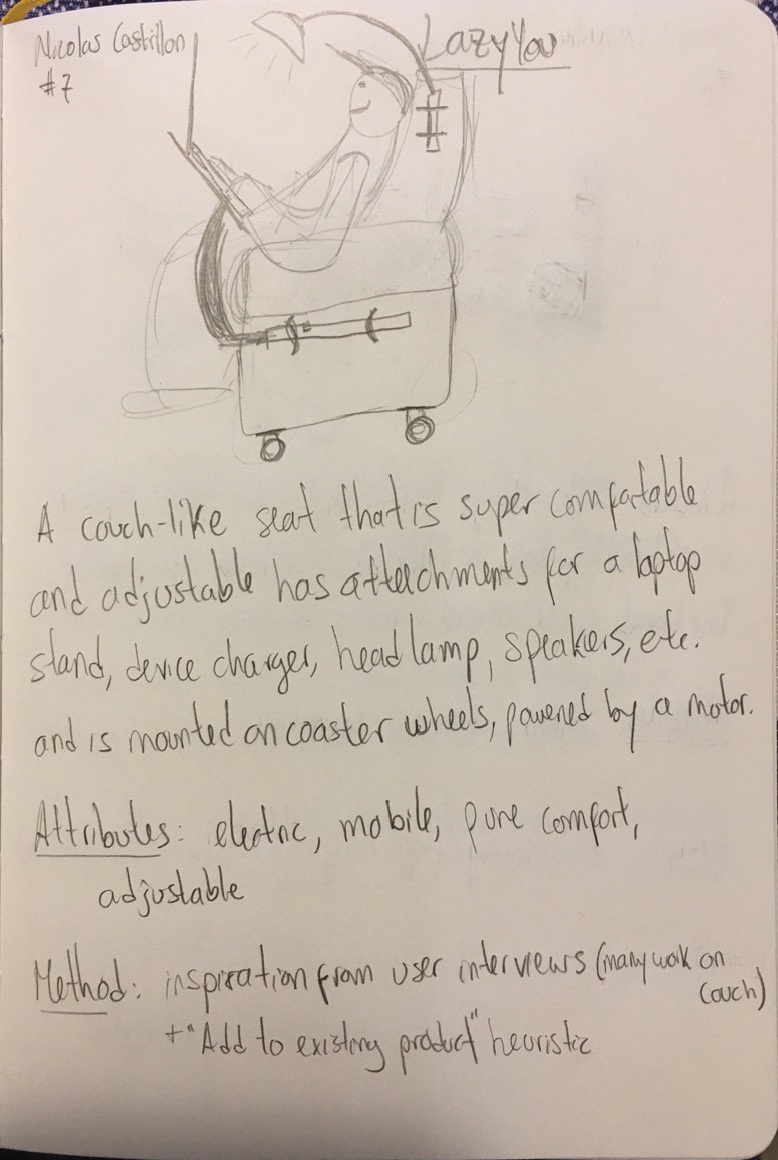 Nicolas Castrillon
#7
LazyYou
A couch-like seat that is super comfortable
and adjustable has attachments for a laptop
stand, device charger, head lamp, speakers, etc.
and is mounted on coaster wheels, powered by a motor.
Attributes: electric, mobile, pure comfort,
adjustable
Method: inspiration from user interviews (many work on
couch)
+ "Add to existing product" heuristic